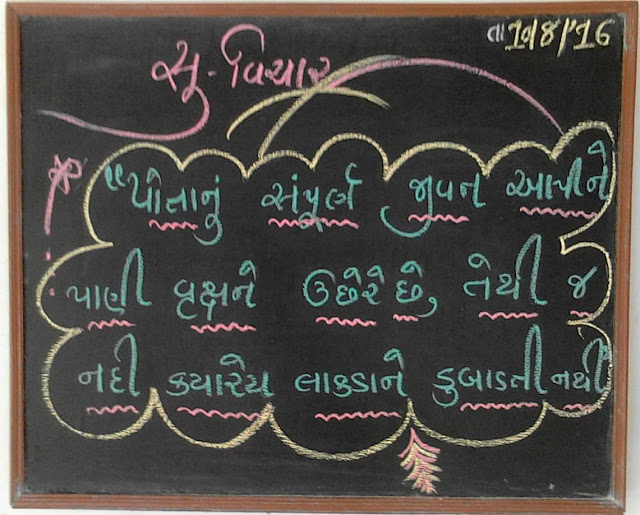 તા 10/8/'16
સુ-વિચાર
"પોતાનું સંપૂર્ણ જીવન આપીને
પાણી વૃક્ષને ઉછેરે છે, તેથી જ
નદી કયારેય લાકડાને ડુબાડતી નથી